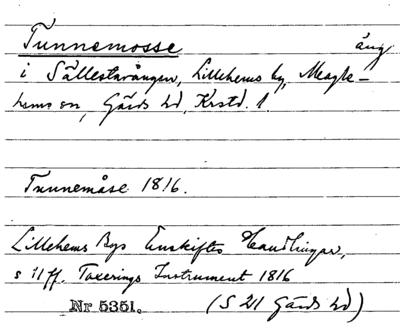 Tunnemosse äng
i Sällestavången, Lillehems by, Meagle-
hems sn, Gärds hd, Krstd. l.
Tnunemåse 1816.
Lillehems Bys Enskiftes Handlingar,
s 11 ff. Taxerings Instrument 1816
Nr 5351. (S 21 Gärds hd)